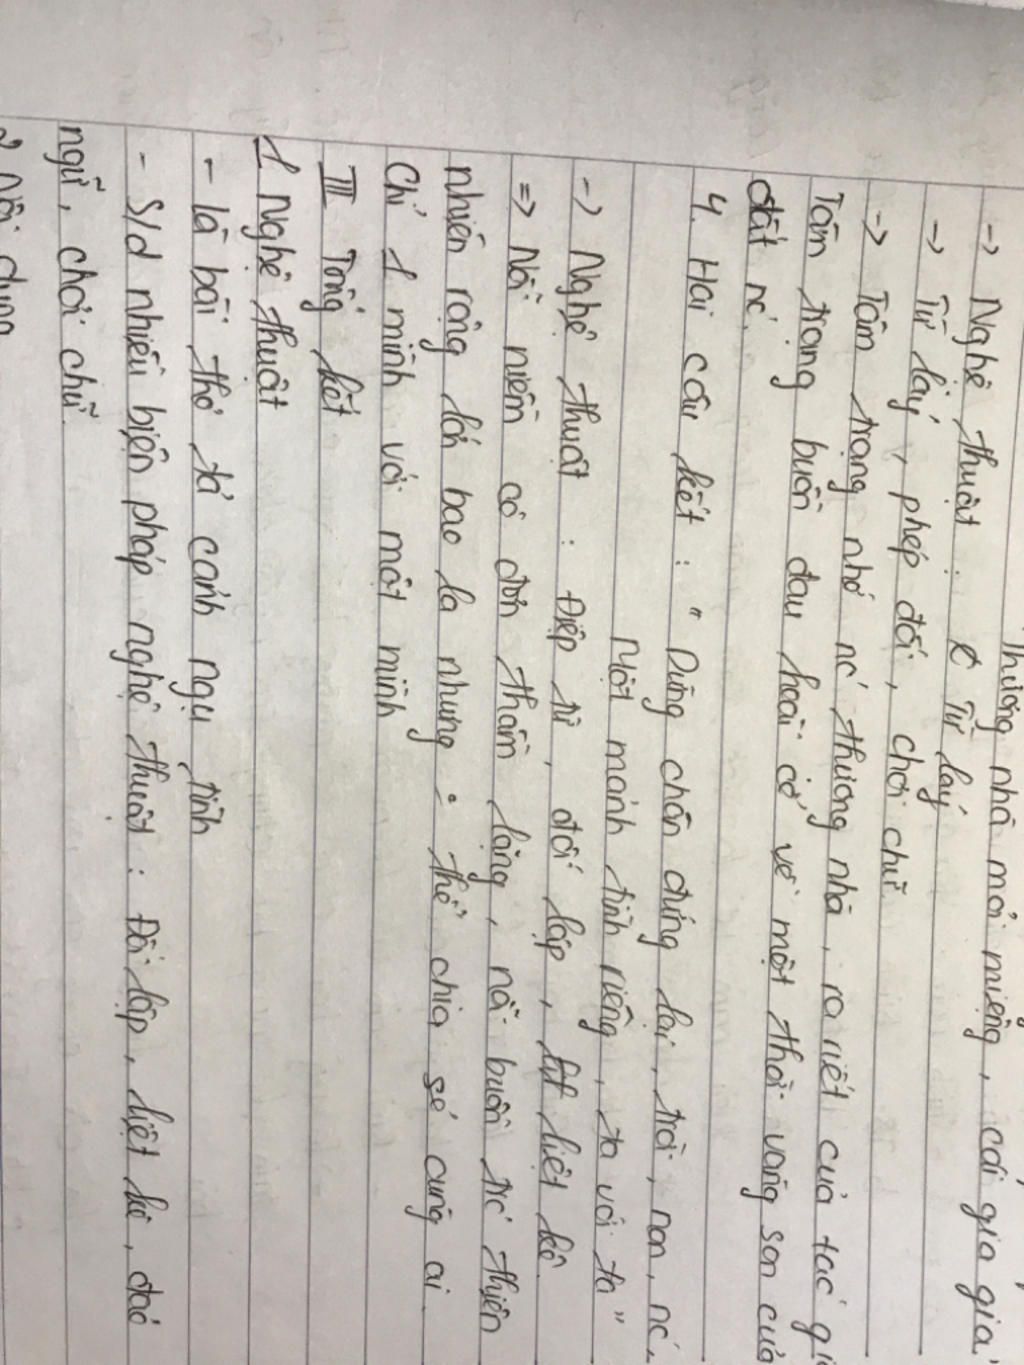 Thương nhà mỏi miệng, cái gia gia
-> Nghệ thuật : Từ láy
-> Từ láy, phép đối, chơi chữ
-> Tâm trạng nhớ nc' thương nhà, ra riết của tác gi
Tâm trạng buồn đau hoài cổ về một thời vàng son của
đất nc'.
4. Hai câu kết : " Dừng chân đứng lại, trời, non, nc',
Một mảnh tình riêng, ta với ta"
-> Nghệ thuật : Điệp từ, đối lập, liệt kê.
=> Nỗi niềm cô đơn thầm lặng, nỗi buồn trc' thiên
nhiên rộng lớn bao la nhưng : thể chia sẻ cùng ai.
Chỉ 1 mình với một mình
III Tổng kết
1. Nghệ thuật
- là bài thơ tả cảnh ngụ tình
- S/d nhiều biện pháp nghệ thuật : Đối lập, liệt kê, đảo
ngữ, chơi chữ.
2 Nội dung